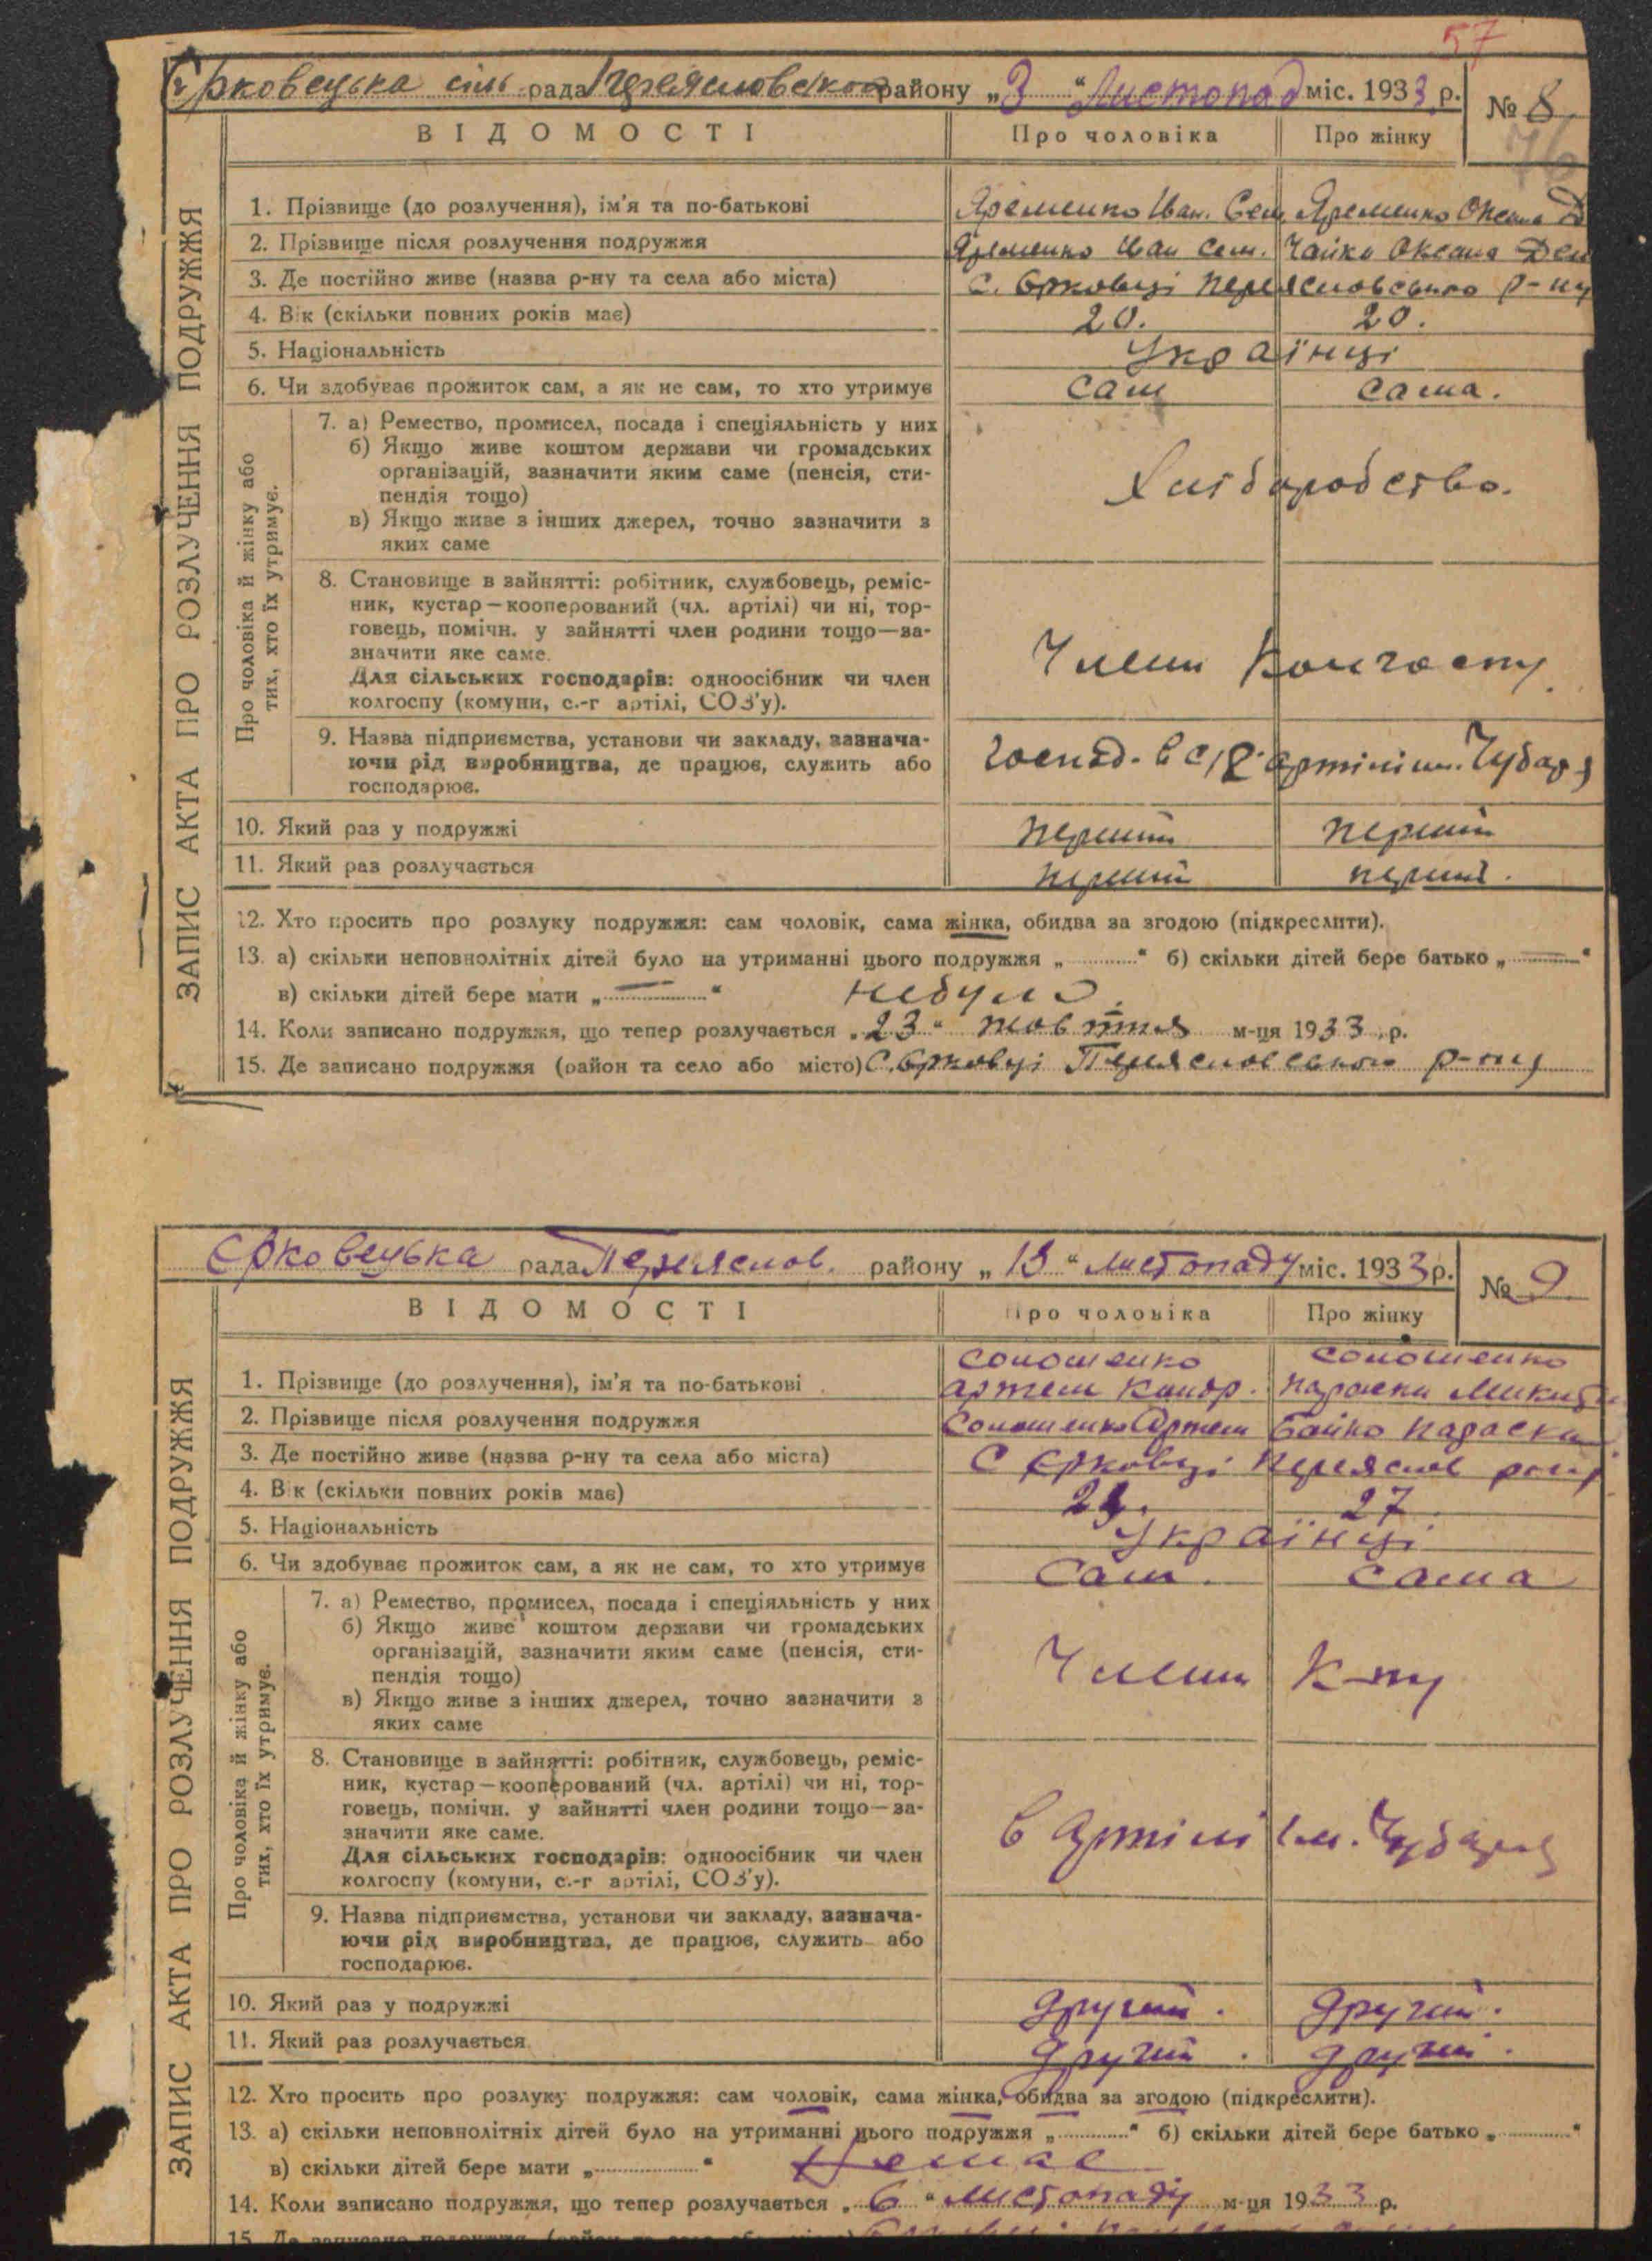 57
Єрковецька сіль рада Переясловского району „3“ Листопад міс. 1933 р.
№ 8
76
ВІДОМОСТІ Про чоловіка Про жінку
ЗАПИС АКТА ПРО РОЗЛУЧЕННЯ ПОДРУЖЖЯ
1. Прізвище (до розлучення), ім'я та по-батькові Яременко Иван. Сем. Яременко Оксана Д
2. Прізвище після розлучення подружжя Яременко Иван Сем. Чайка Оксана Дем
3. Де постійно живе (назва р-ну та села або міста) С. Єрковці Переясловського р-ну
4. Вік (скільки повних років має) 20. 20.
5. Національність Українці
6. Чи здобуває прожиток сам, а як не сам, то хто утримує сам сама.
Про чоловіка й жінку або
тих, хто їх утримує.
7. а) Ремество, промисел, посада і спеціяльність у них
б) Якщо живе коштом держави чи громадських
організацій, зазначити яким саме (пенсія, сти-
пендія тощо)
в) Якщо живе з інших джерел, точно зазначити з
яких саме
Хліборобство.
8. Становище в зайнятті: робітник, службовець, реміс-
ник, кустар—кооперований (чл. артілі) чи ні, тор-
говець, помічн. у зайнятті член родини тощо—за-
значити яке саме.
Для сільських господарів: одноосібник чи член
колгоспу (комуни, с.-г артілі, СОЗ'у).
Члени Колгоспу.
9. Назва підприємства, установи чи закладу, зазнача-
ючи рід виробництва, де працює, служить або
господарює.
господ. в с/г артілі им. Чубаря
10. Який раз у подружжі перший перший
11. Який раз розлучається перший перший.
12. Хто просить про розлуку подружжя: сам чоловік, сама жінка, обидва за згодою (підкреслити).
13. а) скільки неповнолітніх дітей було на утриманні цього подружжя „ “ б) скільки дітей бере батько „—“
в) скільки дітей бере мати „—“ небуло.
14. Коли записано подружжя, що тепер розлучається „23“ Жовтня м-ця 1933 р.
15. Де записано подружжя (район та село або місто) С. Єрковці Переясловського р-ну
Єрковецька рада Переяслов. району „13“ листопаду міс. 1933 р.
№ 9
ВІДОМОСТІ Про чоловіка Про жінку
ЗАПИС АКТА ПРО РОЗЛУЧЕННЯ ПОДРУЖЖЯ
Солошенко Солошенко
1. Прізвище (до розлучення), ім'я та по-батькові Артем Кондр. Параски Микити
2. Прізвище після розлучення подружжя Солошенко Артем Бойко Параска
3. Де постійно живе (назва р-ну та села або міста) С Єрковці Переяслов рону
4. Вік (скільки повних років має) 27
5. Національність Українці
6. Чи здобуває прожиток сам, а як не сам, то хто утримує Сам. Сама
Про чоловіка й жінку або
тих, хто їх утримує.
7. а) Ремество, промисел, посада і спеціяльність у них
б) Якщо живе коштом держави чи громадських
організацій, зазначити яким саме (пенсія, сти-
пендія тощо)
в) Якщо живе з інших джерел, точно зазначити з
яких саме
Члени К-пу
8. Становище в зайнятті: робітник, службовець, реміс-
ник, кустар—кооперований (чл. артілі) чи ні, тор-
говець, помічн. у зайнятті член родини тощо—за-
значити яке саме.
Для сільських господарів: одноосібник чи член
колгоспу (комуни, с.-г артілі, СОЗ'у).
в Артілі ім. Чубаря
9. Назва підприємства, установи чи закладу, зазнача-
ючи рід виробництва, де працює, служить або
господарює.
10. Який раз у подружжі другий. другий.
11. Який раз розлучається другий. другий.
12. Хто просить про розлуку подружжя: сам чоловік, сама жінка, обидва за згодою (підкреслити).
13. а) скільки неповнолітніх дітей було на утриманні цього подружжя „ “ б) скільки дітей бере батько „ “
в) скільки дітей бере мати „ “ Немає
14. Коли записано подружжя, що тепер розлучається „6“ листопаду м-ця 1933 р.
15. Де записано подружжя (район та село або місто)